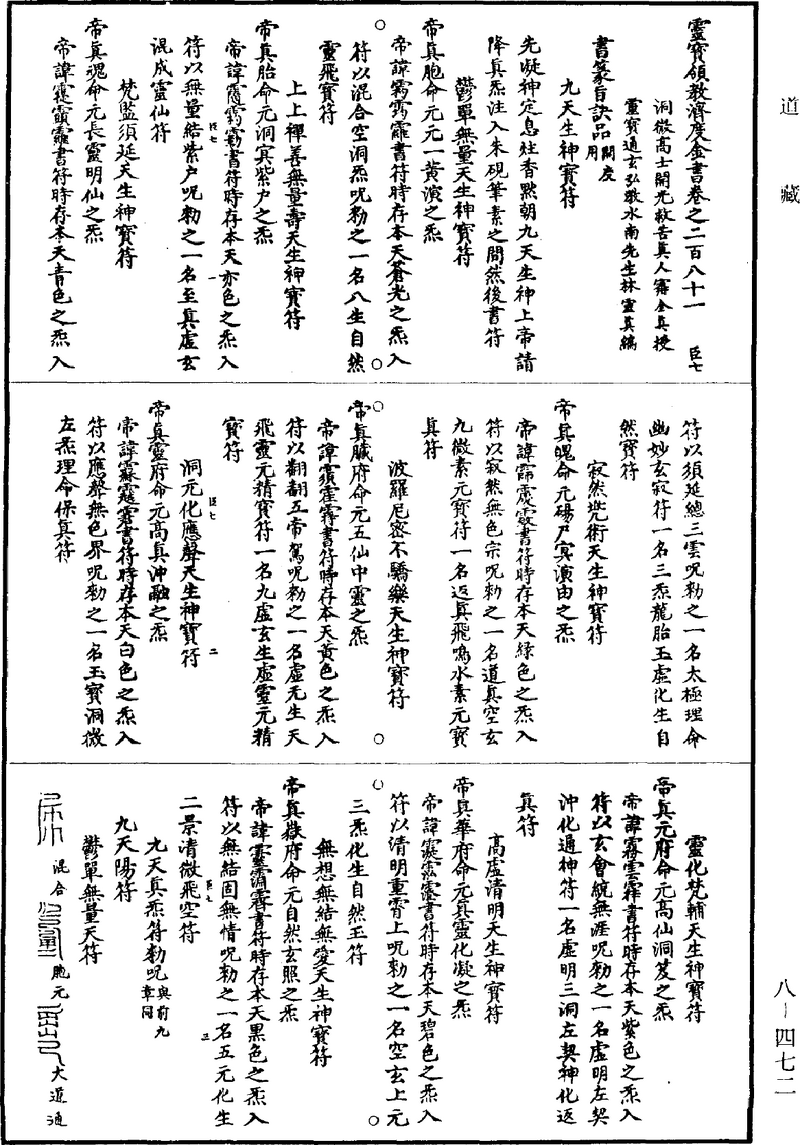 道藏
靈寶領教濟度金書卷之二百八十一 臣七
洞微高士開光救苦真人甯全真授
靈寶通玄弘教水南先生林靈真編
書篆旨訣品 開度用
九天生神寶符
先凝神定息炷香默朝九天生神上帝請
降真炁注入朱硯筆素之間然後書符
鬱單無量天生神寶符
帝真胞命元元一黃演之炁
帝諱書符時存本天蒼光之炁入
符以混合空洞炁呪勑之一名八生自然
靈飛寶符
上上禪善無量壽天生神寶符
帝真胎命元洞冥紫戶之炁
帝諱書符時存本天赤色之炁入
符以無量結紫戶呪勑之一名至真虛玄
混成靈仙符
梵監須延天生神寶符
帝真魂命元長靈明仙之炁
帝諱書符時存本天青色之炁入
符以須延總三雲呪勑之一名太極理命
幽妙玄寂符一名三炁龍胎玉虛化生自
然寶符
寂然兠術天生神寶符
帝真魄命元碭尸冥演由之炁
帝諱書符時存本天綠色之炁入
符以寂然無色宗呪勑之一名道真空玄
九微素元寶符一名返真飛鳴水素元寶
真符
波羅尼密不驕樂天生神寶符
帝真臟府命元五仙中靈之炁
帝諱書符時存本天黃色之炁入
符以翻翻五帝駕呪勑之一名虛无生天
飛靈元精寶符一名九虛玄生虛靈元精
寶符
洞元化應聲天生神寶符
帝真靈府命元高真沖融之炁
帝諱書符時存本天白色之炁入
符以應聲無色界呪勑之一名玉寶洞微
左炁理命保真符
靈化梵輔天生神寶符
帝真元府命元高仙洞笈之炁
帝諱書符時存本天紫色之炁入
符以玄會統無涯呪勑之一名虛明左契
沖化通神符一名虛明三洞左契神化返
真符
高虛清明天生神寶符
帝真華府命元真靈化凝之炁
帝諱書符時存本天碧色之炁入
符以清明重霄上呪勑之一名空玄上元
三炁化生自然王符
無想無結無愛天生神寶符
帝真嶽府命元自然玄照之炁
帝諱書符時存本天黑色之炁入
符以無結固無情呪勑之一名五元化生
二景清微飛空符
九天真炁符勑呪 與前九章同
九天陽符
鬱單無量天符
混合 胞元 大道通
八－四七二